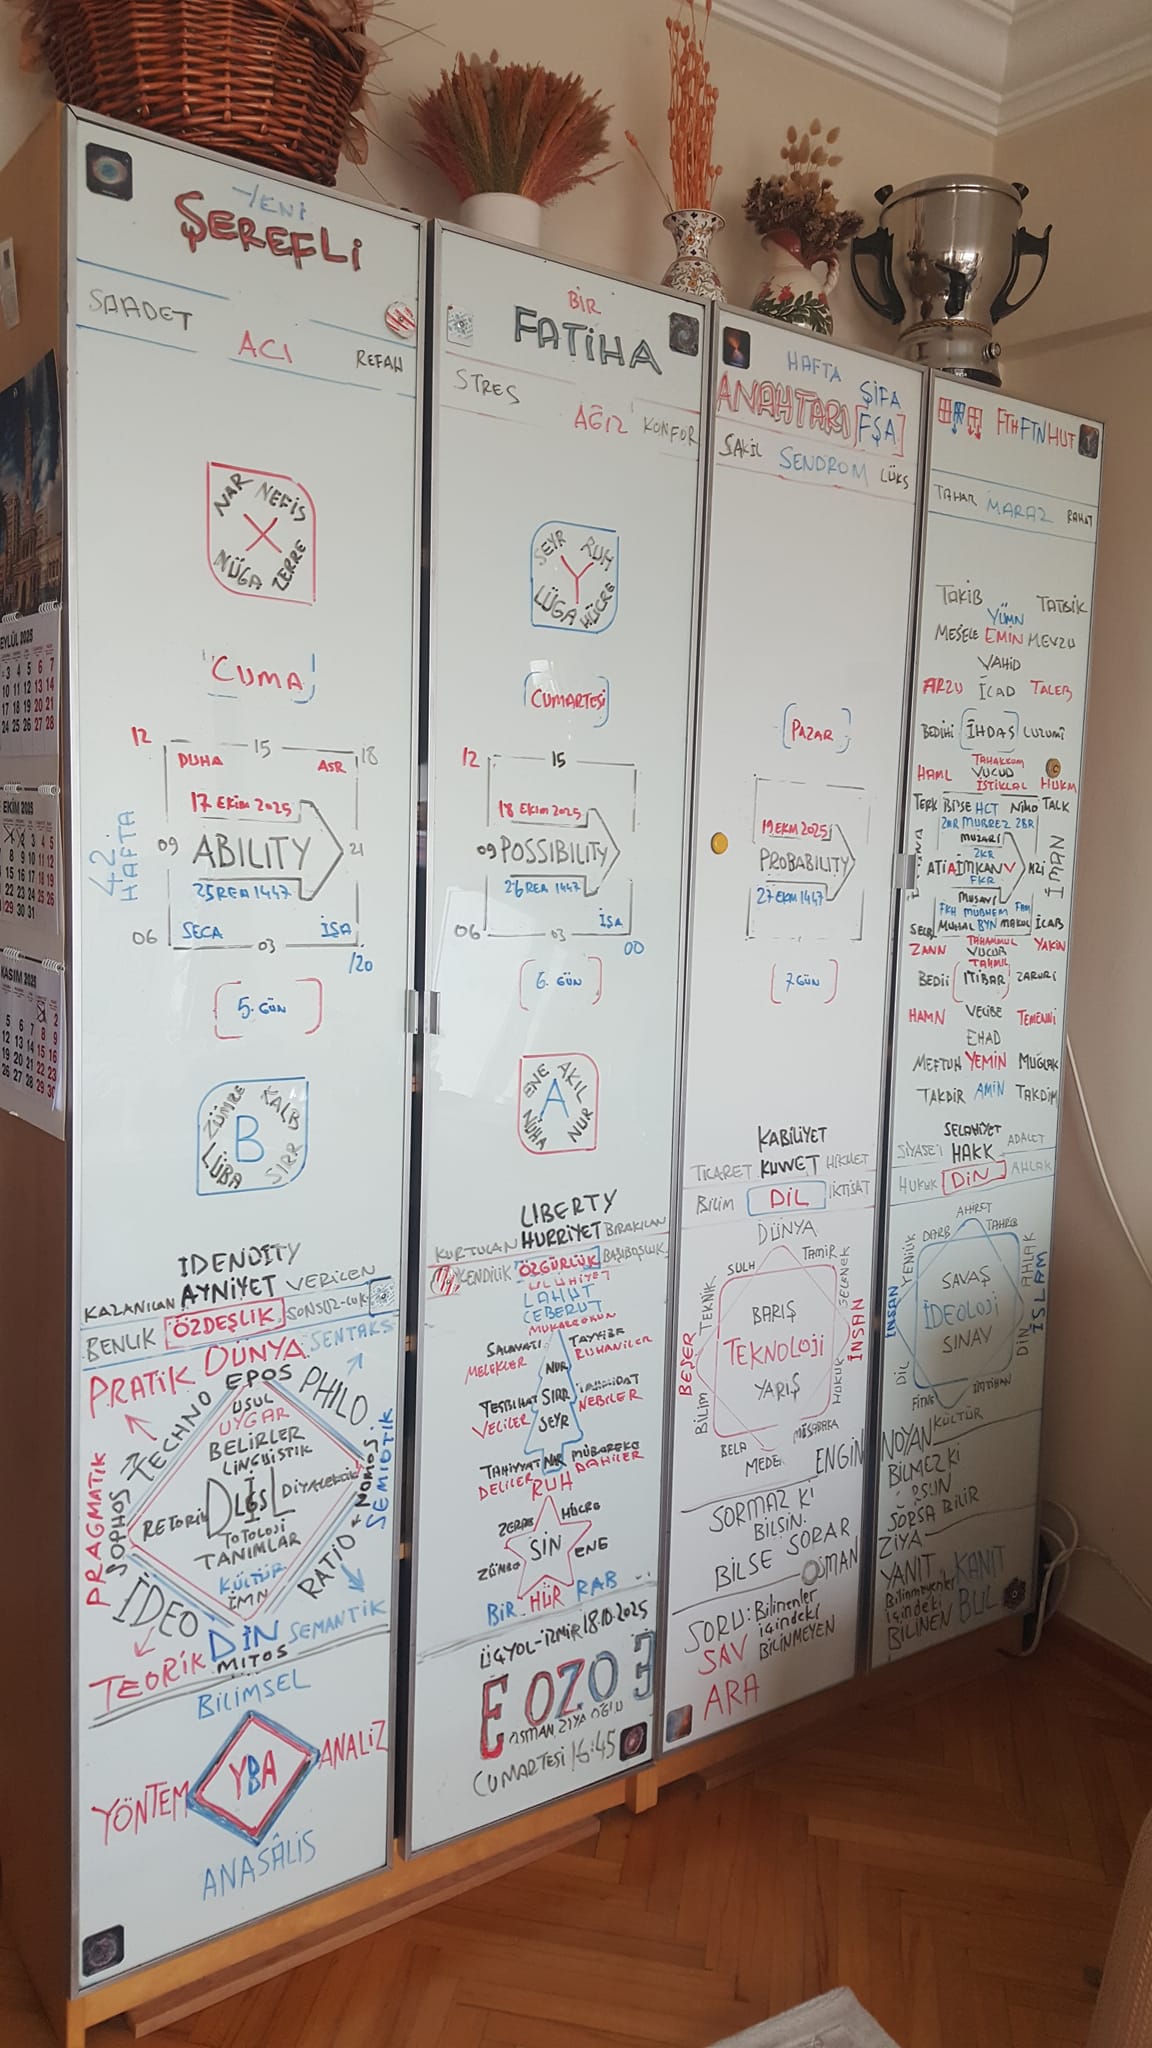 YENİ
ŞEREFLİ
SAADET ACI REFAH
NAR NEFİS
X
NÜGA ZERRE
CUMA
12 15 18
DUHA ASR
17 EKİM 2025
42 HAFTA
09 ABILITY 21
25 REA 1447
SECA İŞA
06 03 /20
5. GÜN
ZÜMRE KALB
B
LÜBA SIRR
IDENDITY
KAZANILAN AYNİYET VERİLEN
BENLIK ÖZDEŞLİK SONSUZ-LUK
PRATİK DÜNYA SENTAKS
EPOS
TECHNO PHILO
USUL
UYGAR
BELİRLER
LİNGUİSTİK
PRAGMATİK SOPHOS RETORİK DİYALEKTİK NOMOS SEMİOTİK
TOTOLOJİ
TANIMLAR
KÜLTÜR
İMN
İDEO RATIO
DİN SEMANTİK
TEORİK MITOS
BİLİMSEL
YÖNTEM YBA ANALİZ
ANASÂLİS
BİR
FATİHA
STRES AĞIZ KONFOR
SEYR RUH
Y
LÜGA HÜCRE
CUMARTESİ
12 15
18 EKİM 2025
09 POSSIBILITY
26 REA 1447
İŞA
06 03 00
6. GÜN
ENE AKIL
A
NUHA NUR
LIBERTY
KURTULAN HURRİYET BIRAKILAN
KENDİLİK ÖZGÜRLÜK BAŞIBOŞLUK
ULUHİYET
LAHUT
CEBERUT
MUKARREBUN
SALAVATI TAYYİBE
MELEKLER NUR RUHANİLER
TESBİHAT SIRR TAHMİDAT
VELİLER NEBİLER
SEYR
TAHİYYAT NAR MÜBAREKE
DELİLER DAHİLER
RUH
ZERRE HÜCRE
SIN
ZÜMRE ENE
BİR HÜR RAB
ÜÇYOL-İZMİR 18.10.2025
E OZO E
OSMAN ZİYA OĞLU
CUMARTESİ 16:45
HAFTA
ANAHTARI ŞİFA
[FŞA]
SAKİL SENDROM LÜKS
PAZAR
19 EKM 2025
PROBABILITY
27 EKM 1447
7. GÜN
KABİLİYET
TİCARET KUVVET HİKMET
BİLİM DİL İKTİSAT
DÜNYA
SULH TAMİR
TEKNİK GELENEK
BARIŞ
BEŞER TEKNOLOJİ İNSAN
YARIŞ
BİLİM HUKUK
BELA MÜSADAKA
MEDE
ENGİN
SORMAZ Kİ
BİLSİN
BİLSE SORAR
OSMAN
SORU: Bilinenler
içindeki
BİLİNMEYEN
SAV
ARA
FTH FTN HUT
TAHAR MARAZ RAHAT
TAKİB TATBİK
YÜMN
MESELE EMİN MEVZU
VAHİD
ARZU İCAD TALEB
BEDİHİ İHDAS LUZUMİ
TAHAKKUM
HAML VUCUD HUKM
İSTİKLAL
TERK BİLSE HCT TALK
MUBREZ
İMKAN İMAN
FKR
MUSAVİ
FKH MUBHEM
SELB MUHAL BYN MAKUL İCAB
ZANN TAHAMMUL YAKİN
VUCUB
TAHMİL
BEDİİ İTİBAR ZARURİ
HAMN VECİBE TEMENNİ
EHAD
MEFTUH YEMİN MUĞLAK
TAKDİR AMİN TAKDİM
SELAHİYET
SİYASET HAKK ADALET
HUKUK DİN AHLAK
AHİRET
DARB TAHRİB
YENİLİK AHLAK
SAVAŞ
İNSAN İDEOLOJİ İSLAM
SINAV
DİL DİN
FİTNE İMTİHAN
KÜLTÜR
NOYAN
BİLMEZ Kİ
SORSUN
SORSA BİLİR
ZİYA
YANIT KANIT
Bilinmeyenler
içindeki
BİLİNEN BUL
EYLÜL 2025
EKİM 2025
KASIM 2025